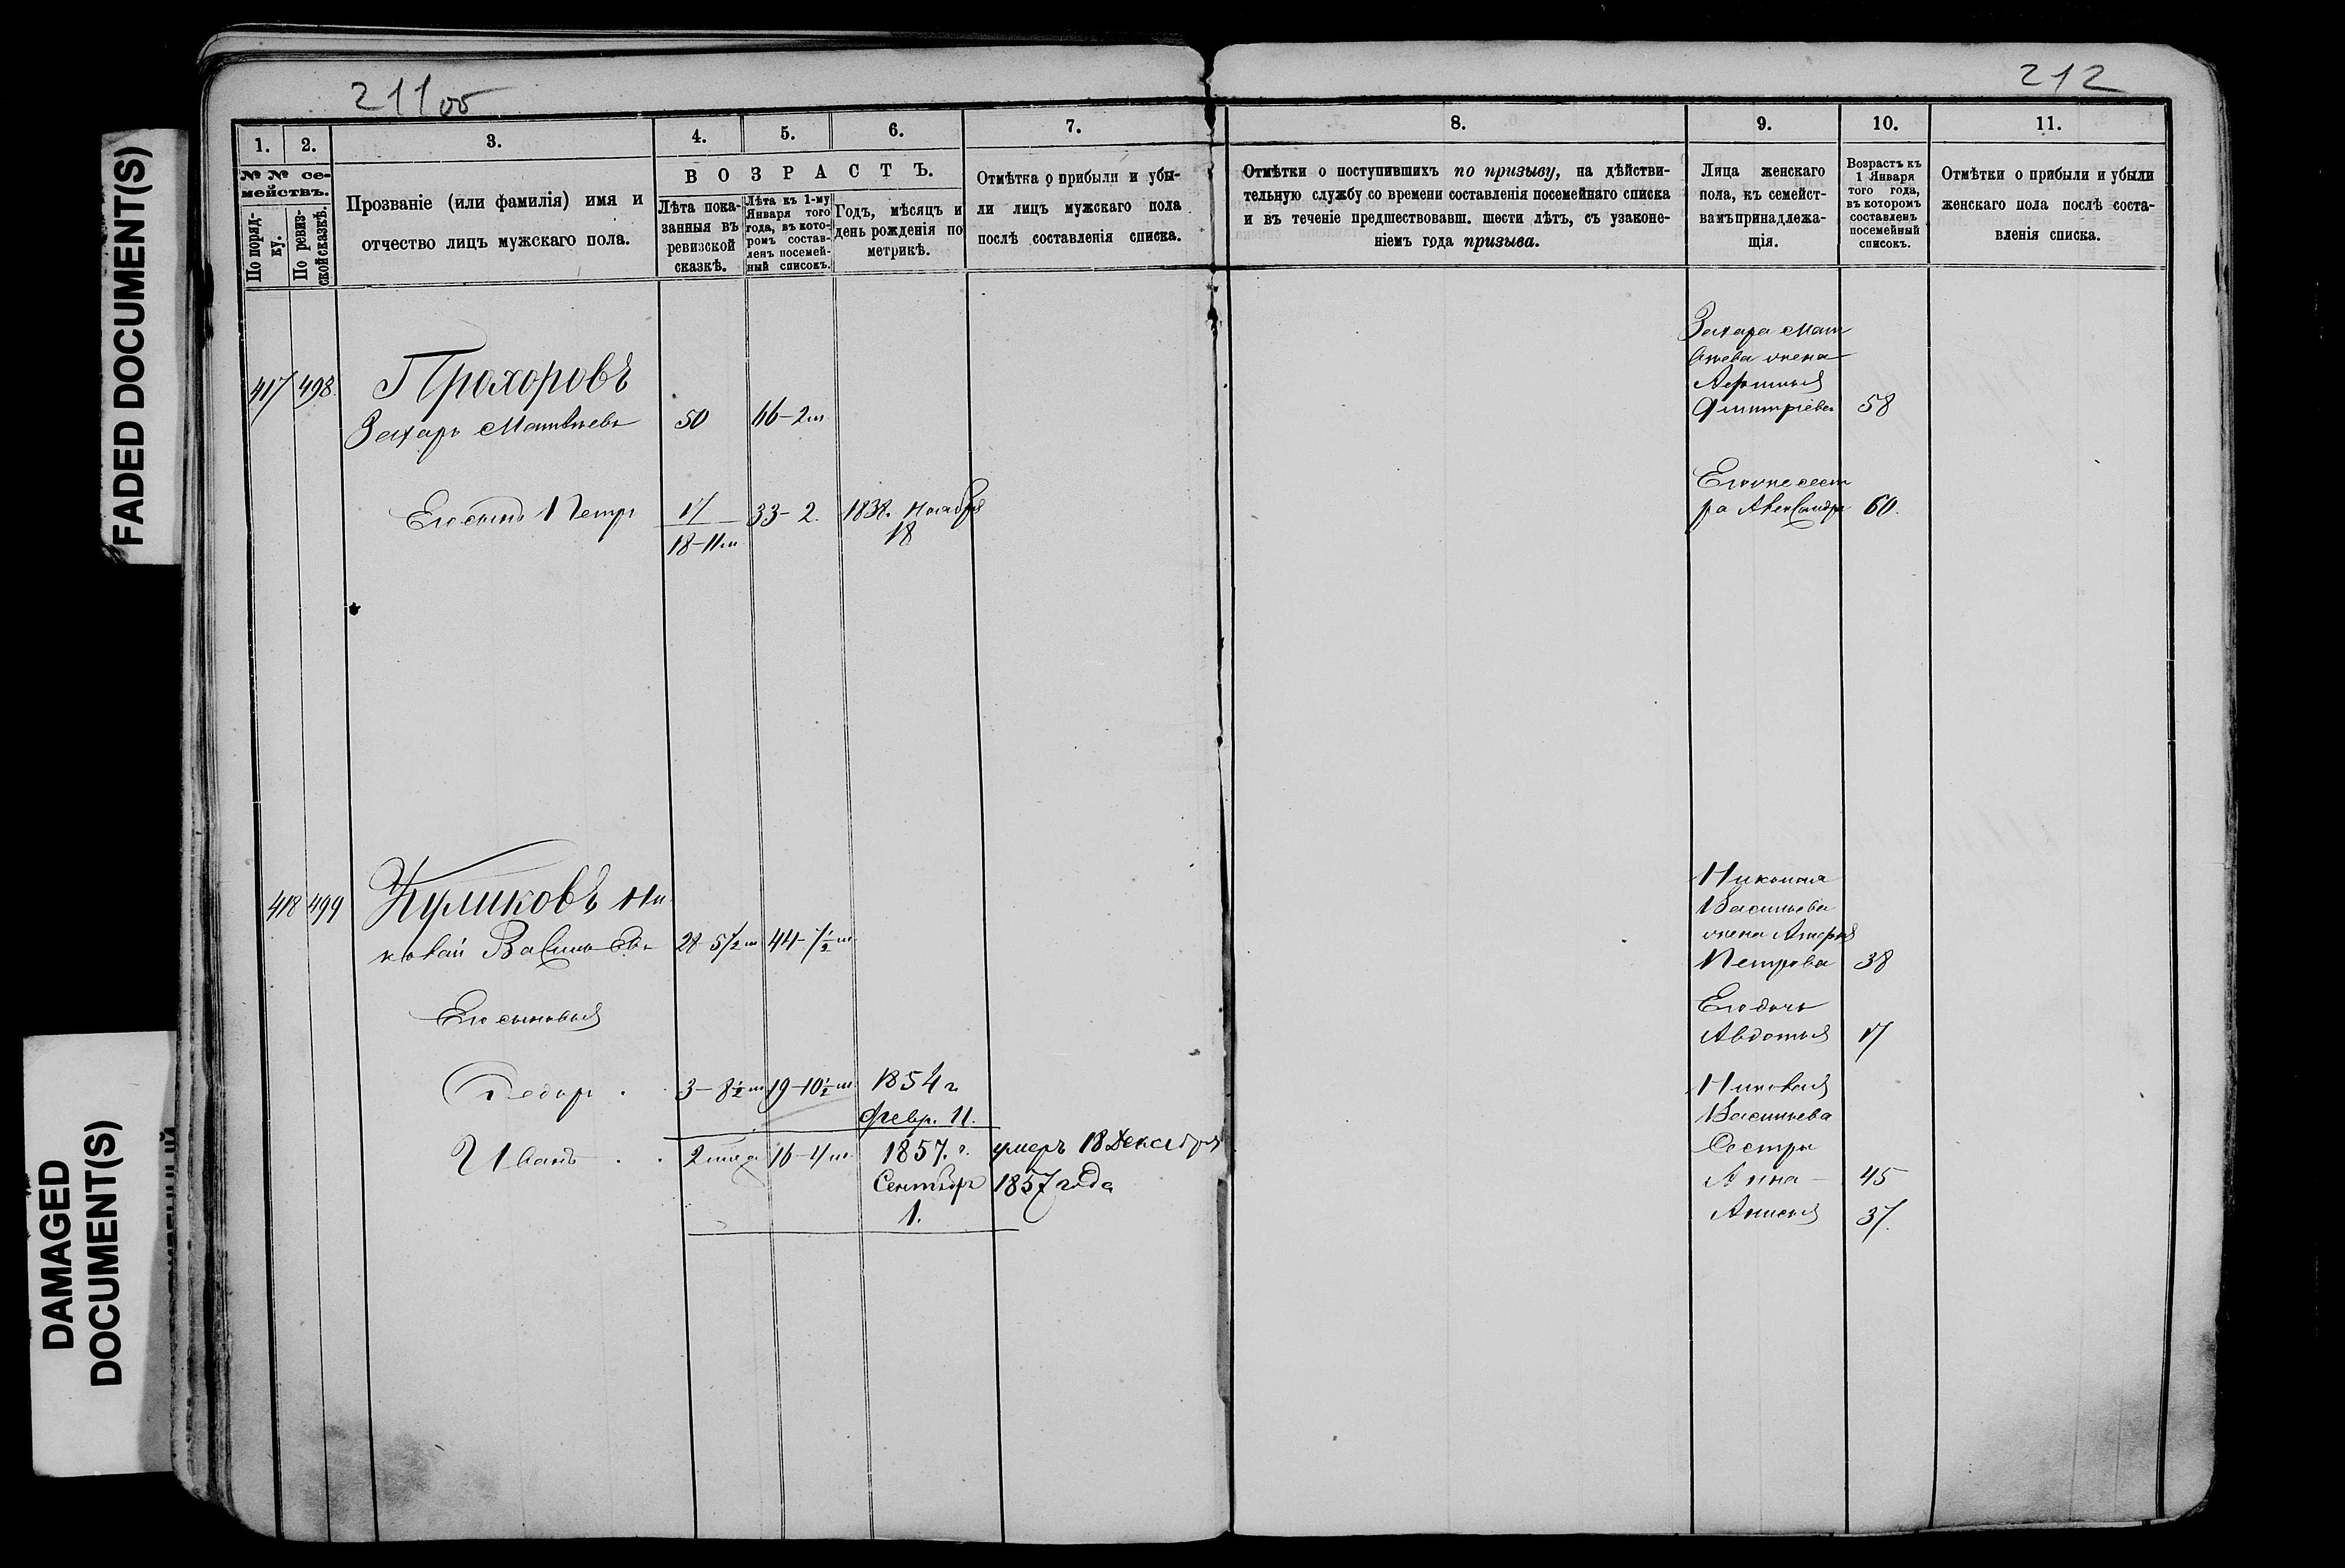 FADED DOCUMENT(S)
DAMAGED
DOCUMENT(S)
211 об
1.
2.
3.
4.
5.
6.
7.
№ № се-
мействъ.
По поряд-
ку.
По ревиз-
ской сказкѣ.
Прозваніе (или фамилія) имя и
отчество лицъ мужскаго пола.
ВОЗРАСТЪ.
Лѣта пока-
занныя въ
ревизской
сказкѣ.
Лѣта къ 1-му
Января того
года, въ кото-
ромъ состав-
ленъ посемей-
ный списокъ.
Годъ, мѣсяцъ и
день рожденія по
метрикѣ.
Отмѣтка о прибыли и убы-
ли лицъ мужскаго пола
послѣ составленія списка.
417 498.
Прохоровъ
Захаръ Матвѣевъ 50 66-2м
Его сынъ Петръ 17 33-2. 1838. Ноября
18-11м 18
418 499 Куликовъ Ни
колай Васильевъ 28-5½м 44-7½м
Его сыновья
Федоръ 3-8½м 19-10½м 1854 г
Февр. 11.
Иванъ 16-4м. 1857. г. умеръ 18 Декабря
Сентябр 1857 года
1.
212
8.
9.
10.
11.
Отмѣтки о поступившихъ по призыву, на дѣйстви-
тельную службу со времени составленія посемейнаго списка
и въ теченіе предшествовавш. шести лѣтъ, съ узаконе-
ніемъ года призыва.
Лица женскаго
пола, къ семейст-
вамъ принадлежа-
щія.
Возрастъ къ
1 Января
того года,
въ которомъ
составленъ
посемейный
списокъ.
Отмѣтки о прибыли и убыли
женскаго пола послѣ соста-
вленія списка.
Захара Мат
вѣева жена
Афимья
Дмитріева 58
Его же сест
ра Александра 60.
Николая
Васильева
жена
Петрова 38
Его дочь
Авдотья 17
Николая
Васильева
Сестры
Анна 45
Анисья 37.